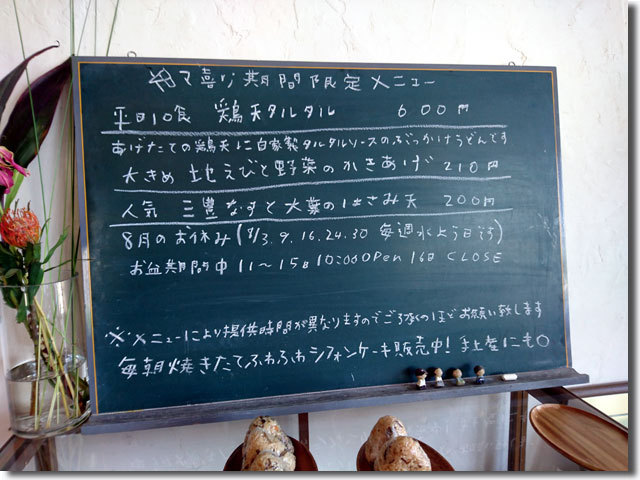 やま喜なり期間限定メニュー
平日10食 鶏天タルタル 600円
あげたての鶏天に自家製タルタルソースのぶっかけうどんです
大きめ 地えびと野菜のかきあげ 210円
人気 三豊なすと大葉のはさみ天 200円
8月のお休み(8/3.9.16.24.30 毎週水よう日です)
お盆期間中 11〜15日 10:00 OPen 16日 CLOSE
※メニューにより提供時間が異なりますのでごろ承のほどお願い致します
毎朝焼きたてふわふわシフォンケーキ販売中! 手土産にも○